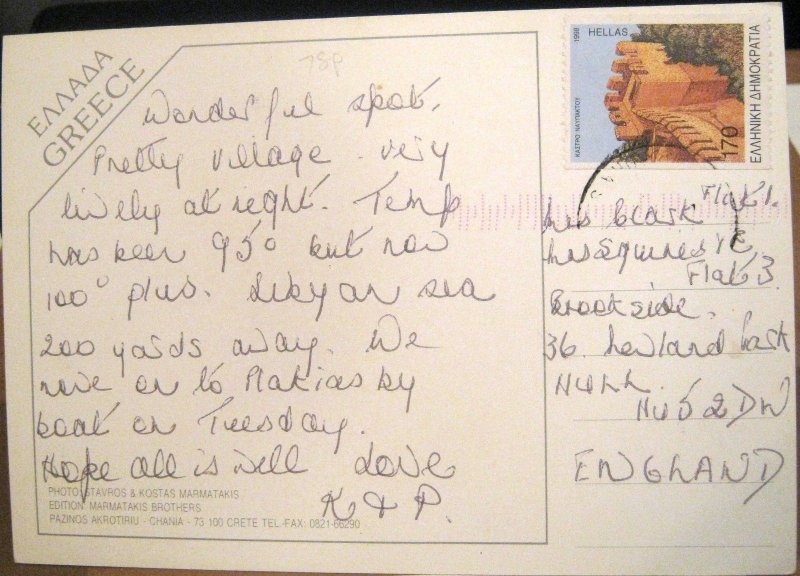 ΕΛΛΑΔΑ
GREECE
75p
Wonderful spot.
Pretty village very
lively at night. Temp
has been 95° but now
100° plus. Libyan sea
200 yards away. We
move on to Plakias by
boat on Tuesday.
Hope all is well Love
K & P.
PHOTO: STAVROS & KOSTAS MARMATAKIS
EDITION: MARMATAKIS BROTHERS
PAZINOS AKROTIRIU - CHANIA - 73 100 CRETE TEL.-FAX: 0821-66290
1998
HELLAS
ΚΑΣΤΡΟ ΝΑΥΠΑΚΤΟΥ
170
ΕΛΛΗΝΙΚΗ ΔΗΜΟΚΡΑΤΙΑ
Flat 1.
Mrs
Mrs Squires
Flat 3
Brookside.
36
HULL
HU5 2DW
ENGLAND